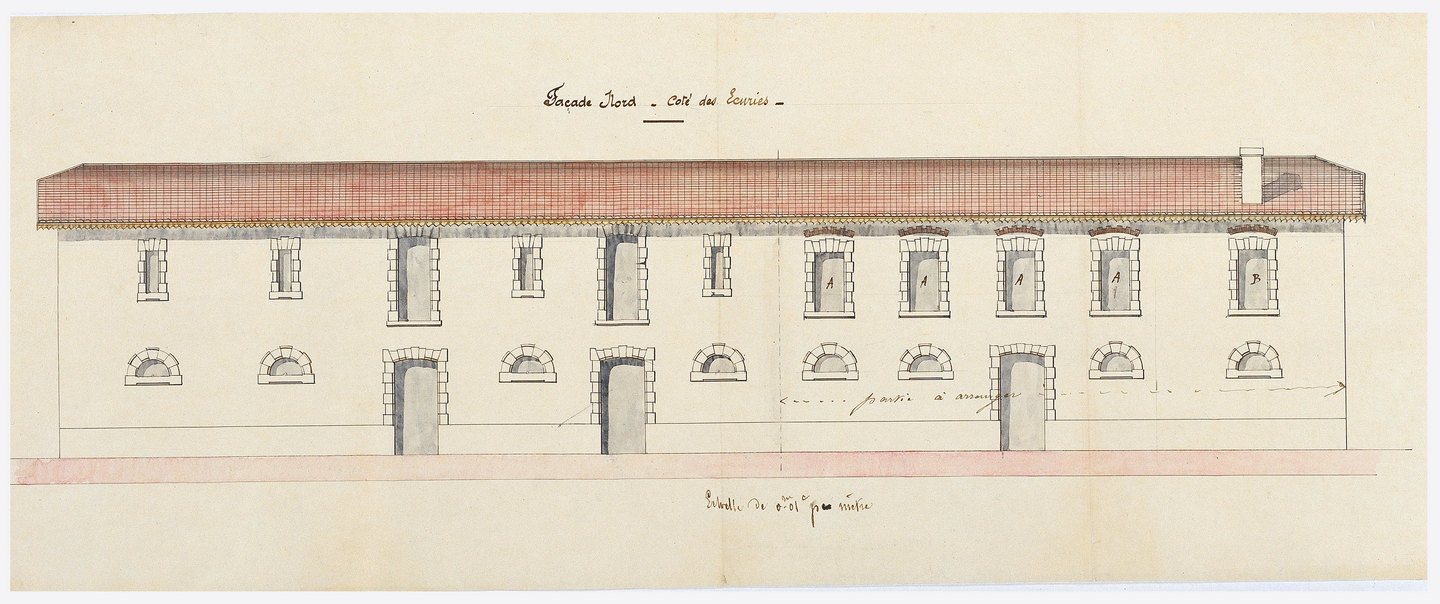 Façade Nord - Coté des Ecuries -
A A A A B
<---- partie à arranger ---->
Echelle de 0m01c par mètre